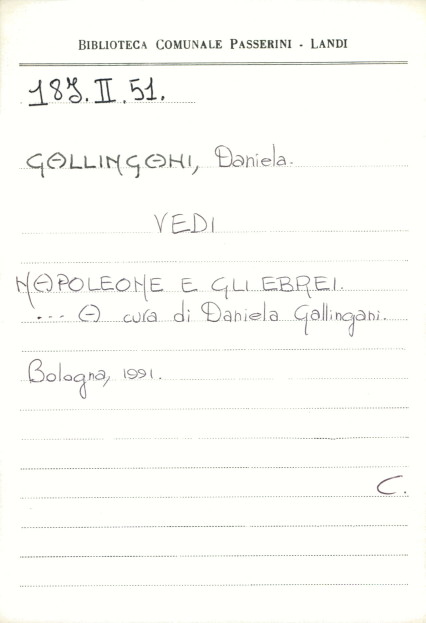 BIBLIOTECA COMUNALE PASSERINI - LANDI
187.II.51.
GALLINGANI, Daniela.
VEDI
NAPOLEONE E GLI EBREI.
... A cura di Daniela Gallingani.
Bologna, 1991.
C.